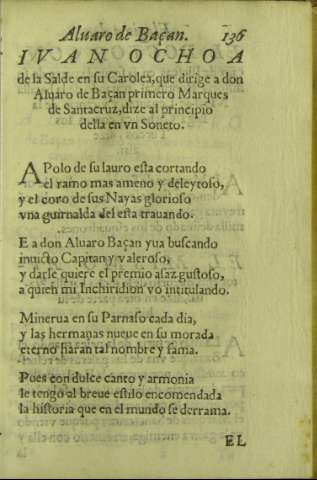 Aluaro de Baçan. 136
IVAN OCHOA
de la Salde en su Carolea, que dirige a don
Aluaro de Baçan primero Marques
de Santacruz, dize al principio
della en vn Soneto.
APolo de su lauro esta cortando
el ramo mas ameno y deleytoso,
y el coro de sus Nayas glorioso
vna guirnalda del esta trauando.
E a don Aluaro Baçan yua buscando
inuicto Capitan y valeroso,
y darle quiere el premio asaz gustoso,
a quien mi Inchiridion vo intitulando.
Minerua en su Parnaso cada dia,
y las hermanas nueue en su morada
eterno haran tal nombre y fama.
Pues con dulce canto y armonia
le tengo al breue estilo encomendada
la historia que en el mundo se derrama.
EL